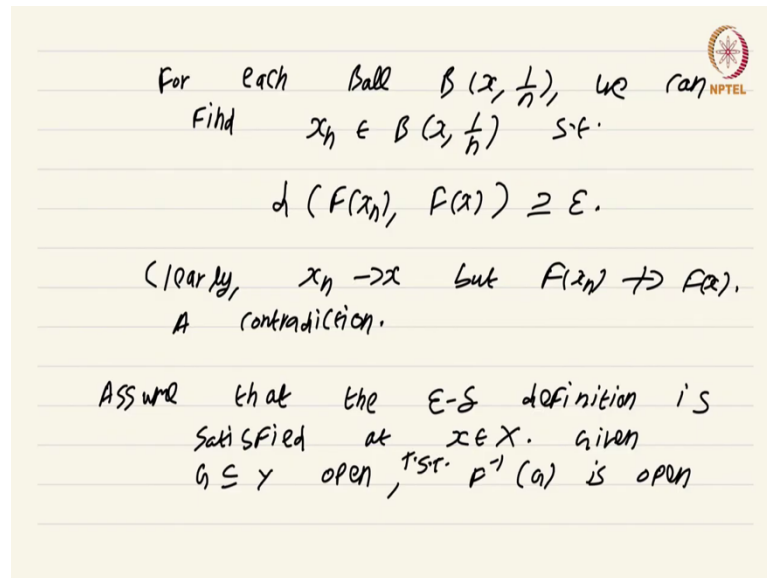 For each Ball B(x, 1/n), we can
NPTEL
Find xn ∈ B(x, 1/n) s.t.
d(F(xn), F(x)) ≥ ε.
Clearly, xn → x but F(xn) ↛ F(x).
A contradiction.
Assume that the ε-δ definition is
satisfied at x ∈ X. Given
G ⊆ Y open, T.S.T. F⁻¹(G) is open